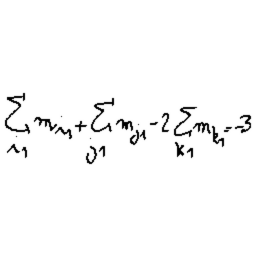 \sum_{i_1} m_{i_1} + \sum_{j_1} m_{j_1} - 2 \sum_{k_1} m_{k_1} = -3